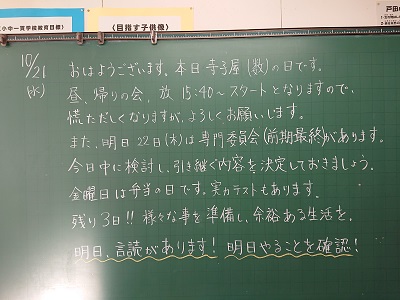 小中一貫学校教育目標)
(目指す子供像)
戸田の
10/21
(水)
おはようございます。本日寺子屋(数)の日です。
昼、帰りの会、放 15:40~スタートとなりますので、
慌ただしくなりますが、よろしくお願いします。
また、明日22日(木)は専門委員会(前期最終)があります。
今日中に検討し、引き継ぐ内容を決定しておきましょう。
金曜日は弁当の日です。実力テストもあります。
残り3日!! 様々な事を準備し、余裕ある生活を。
明日、言読があります! 明日やることを確認!